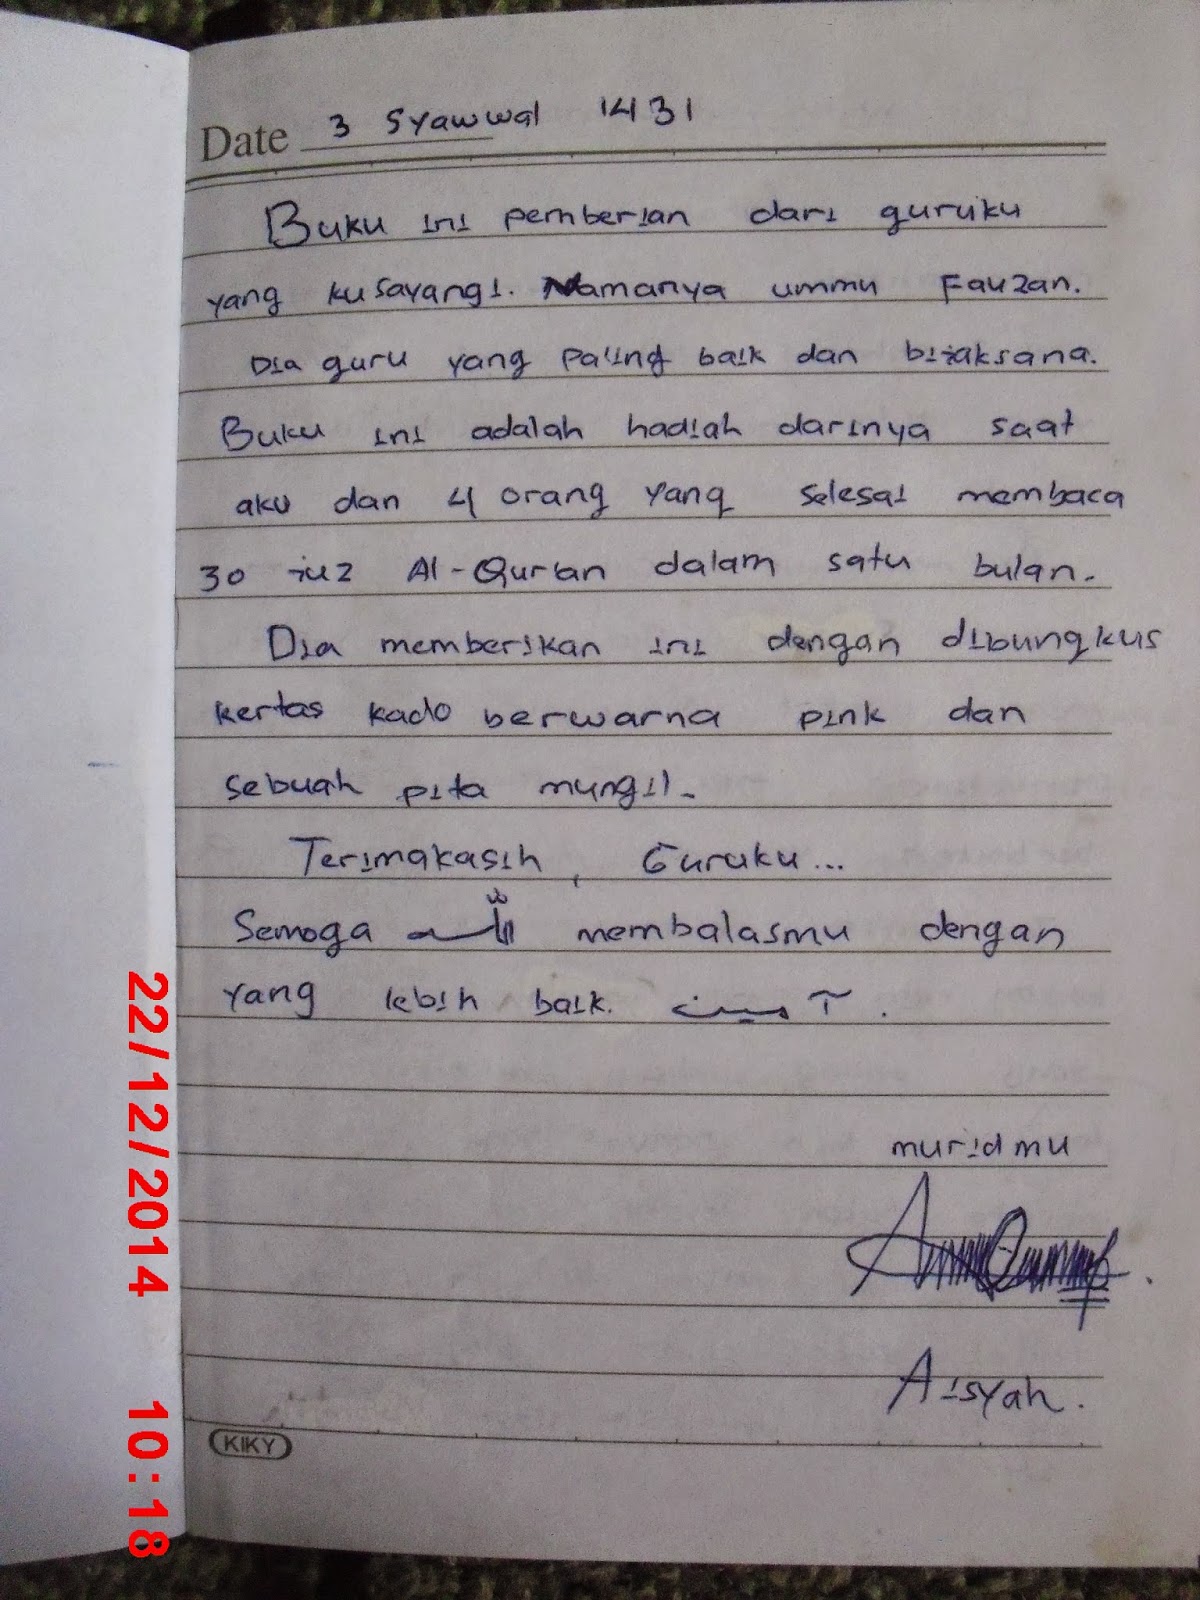 Date 3 Syawwal 1431
Buku ini pemberian dari guruku
yang kusayangi. Namanya ummu Fauzan.
Dia guru yang paling baik dan bijaksana.
Buku ini adalah hadiah darinya saat
aku dan 4 orang yang selesai membaca
30 juz Al-Qur'an dalam satu bulan.
Dia memberikan ini dengan dibungkus
kertas kado berwarna pink dan
sebuah pita mungil.
Terimakasih, Guruku...
Semoga الله membalasmu dengan
yang lebih baik. آمين.
muridmu
Aisyah.
KIKY
22/12/2014 10:18